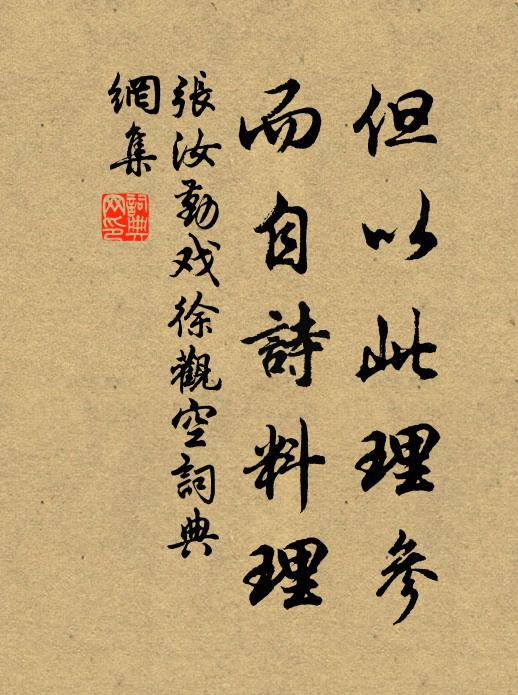 但以此理參
而自詩料理
張汝勤戏徐觀空詞典
網集
詞典網印